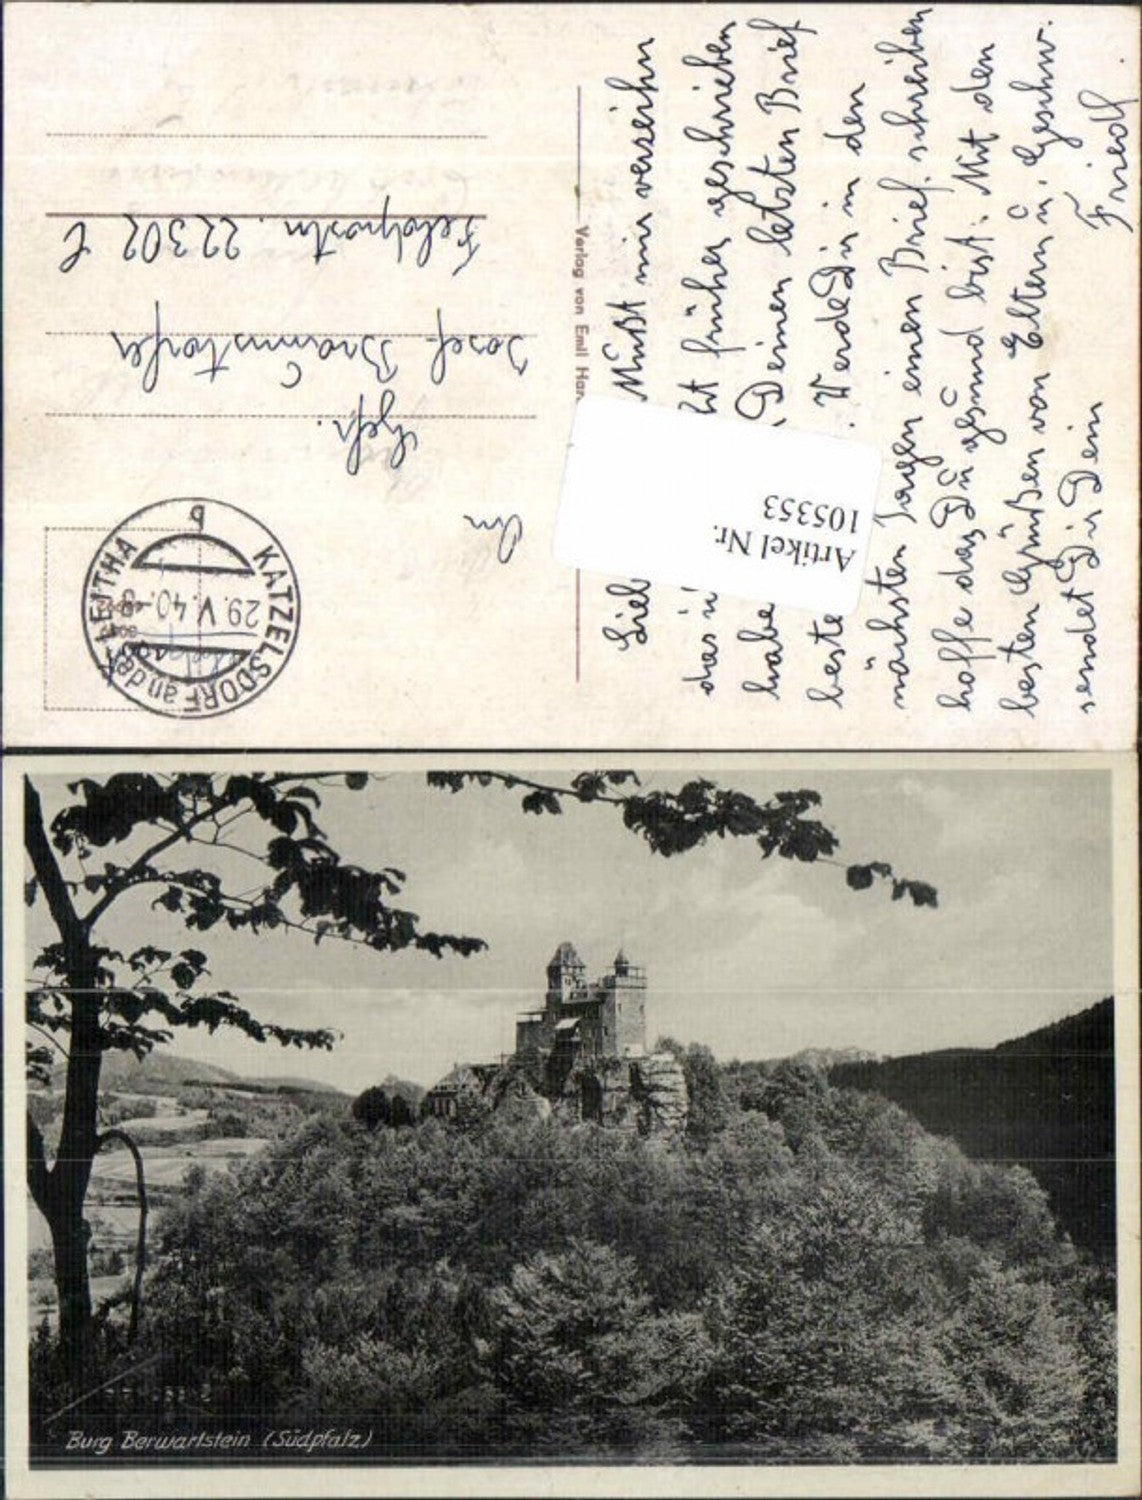 Lieb Mußt mir verzeihn
das i ht früher geschrieben
habe Deinen letzten Brief
beste . Werde Dir in den
nächsten Tagen einen Brief schreiben
hoffe das Du gesund bist. Mit den
besten Grüßen von Eltern u. Geschw.
sendet Dir Dein
Friedl.
Verlag von Emil Har
Artikel Nr.
105353
KATZELSDORF an der LEITHA
29.V.40.-8
b
An
Gefr.
Josef
Feldpostn. 22302 C
Burg Berwartstein (Südpfalz)